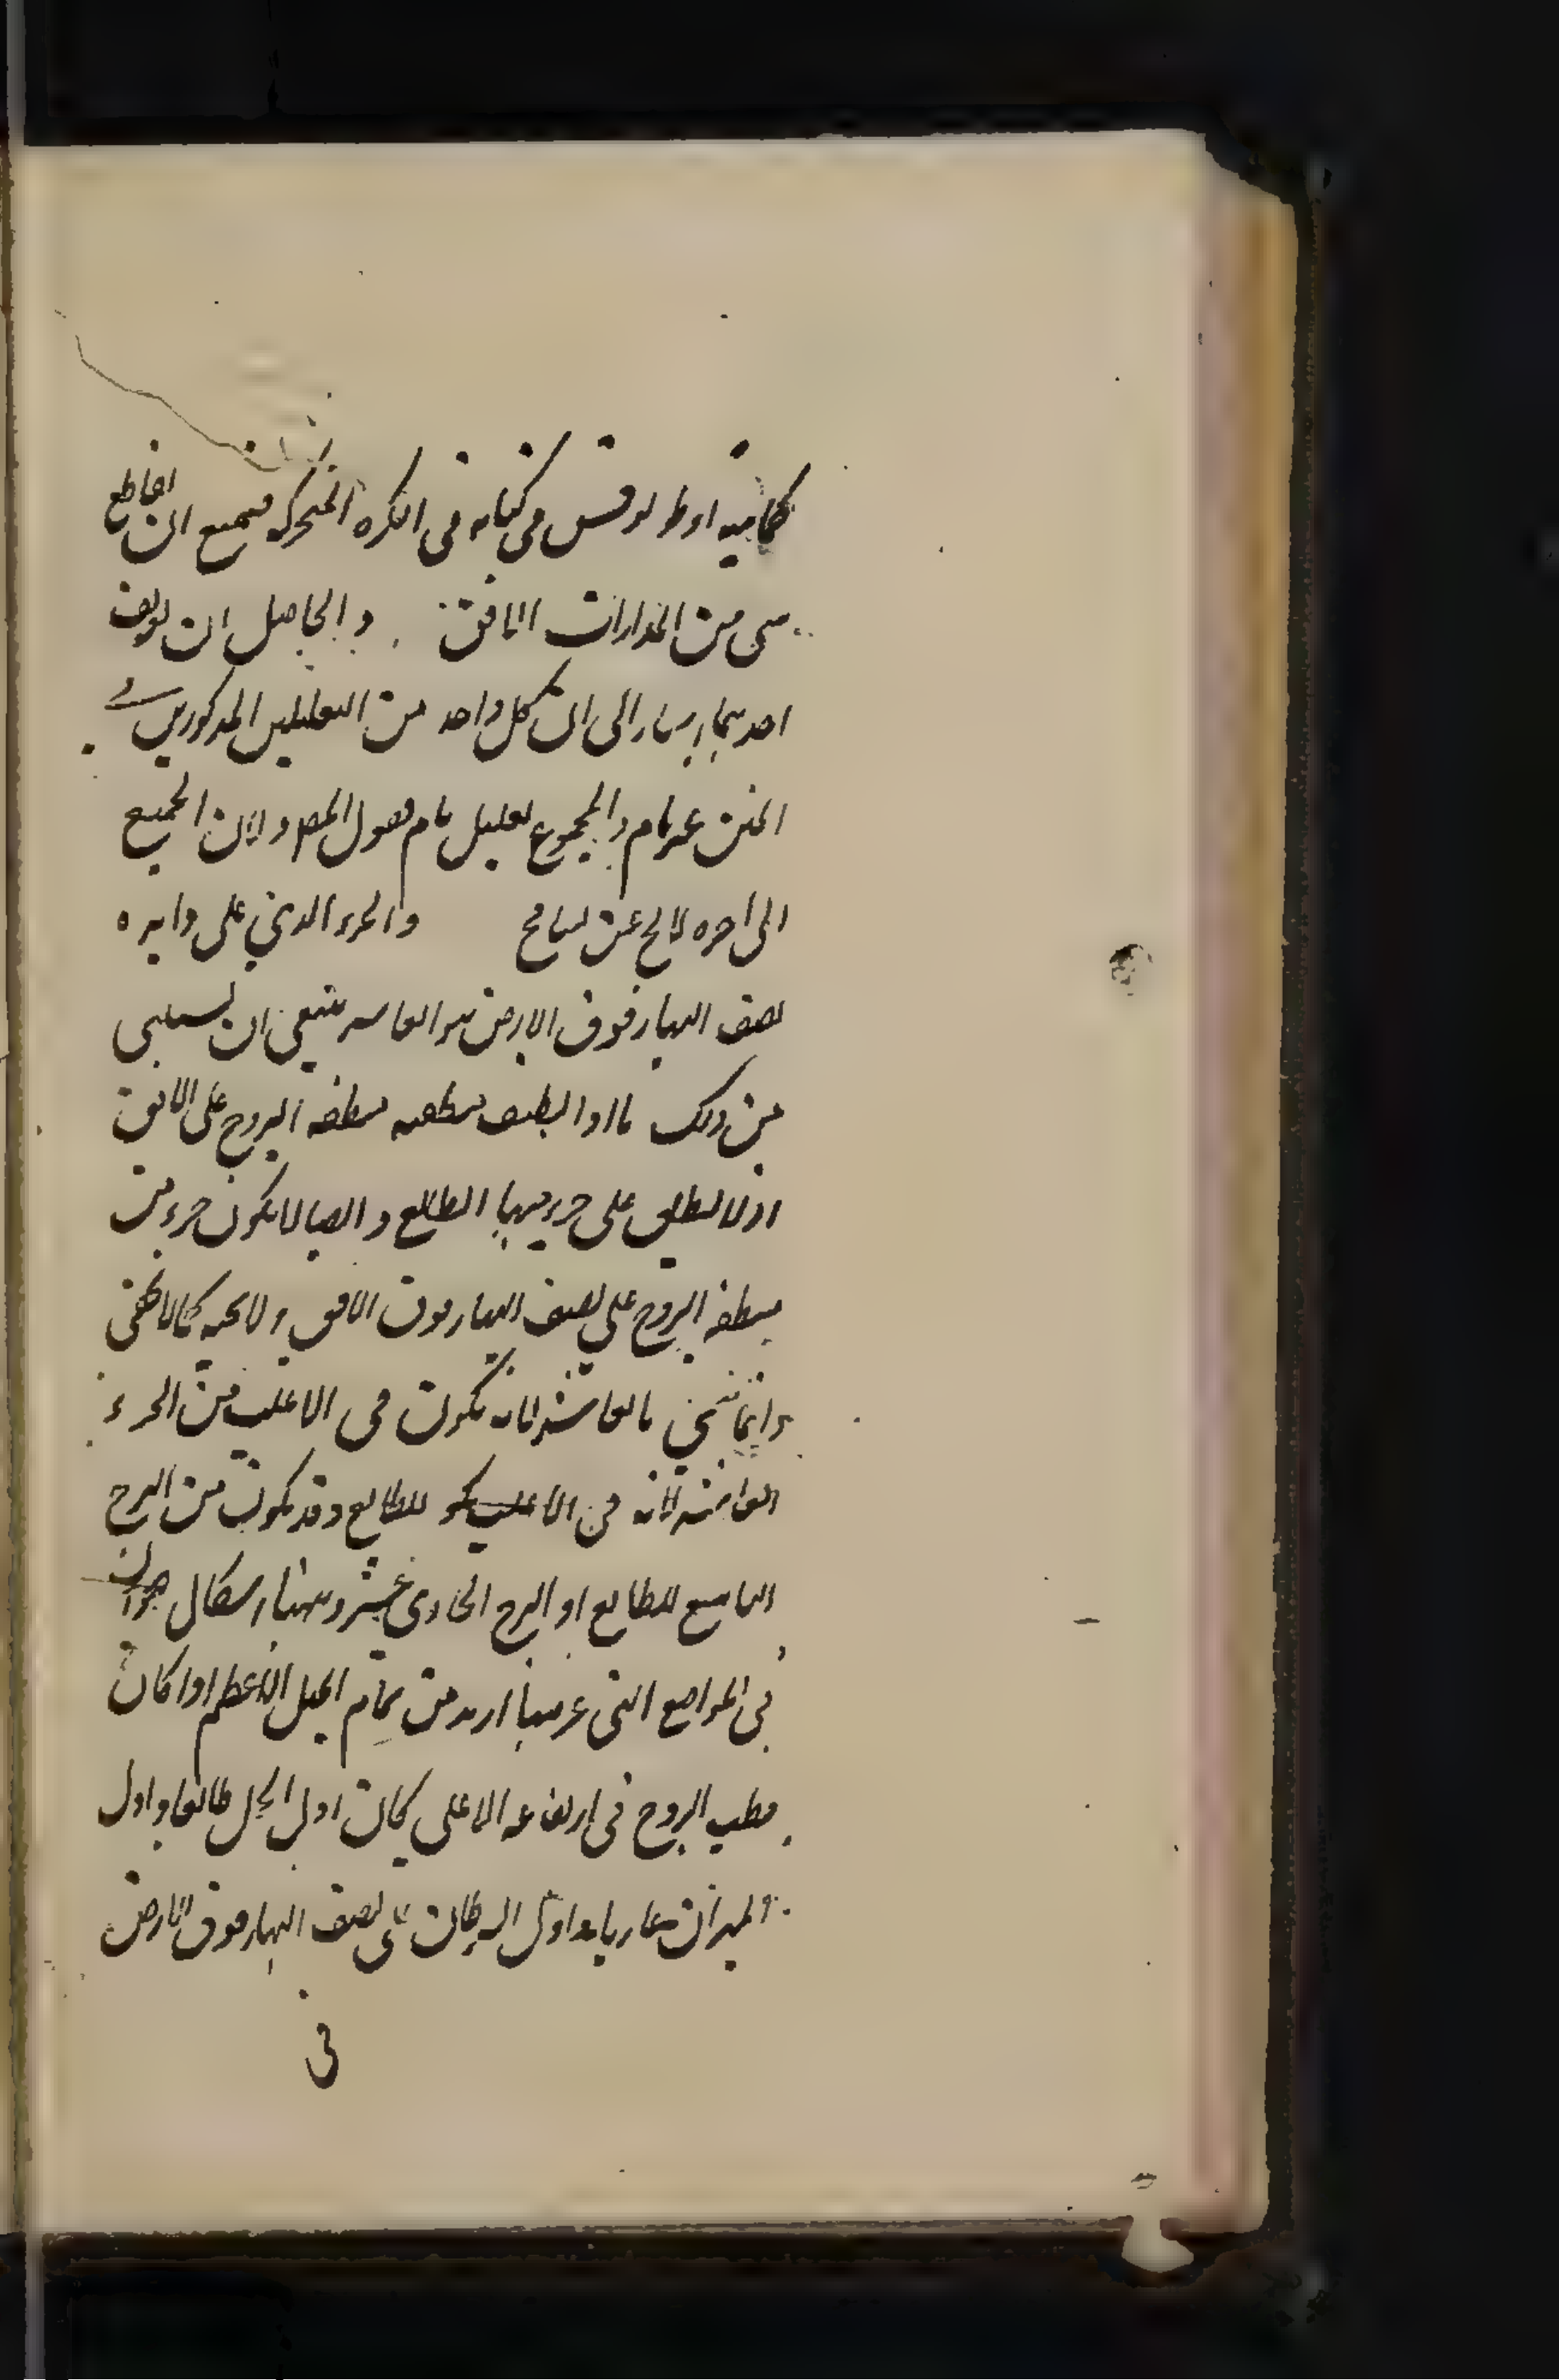 كما بينه اوطولوقس في كتابه في الكره المتحركه فيمتنع ان يقاطع
شى من المدارات الافق والحاصل ان
احديهما اشار الى ان كل واحد من التعليلين المذكورين في
المتن غير تام والمجموع تعليل تام فقول المص ولان الجميع
الى اخره لا يخ عن تسامح والجزء الذي على دايره
نصف النهار فوق الارض هو العاشر ينبغي ان يستثنى
من ذلك ما اذا انطبقت منطقه البروج على الافق
اذ لا يطلق على جزء منها الطالع وايضا لا يكون جزء من
منطقه البروج على نصف النهار فوق الافق ولا تحته كما لا يخفى
وانما سمي بالعاشر لانه يكون في الاغلب من الجزء
العاشر لانه في الاغلب يكو للطالع وقد يكون من البرج
التاسع للطالع او البرج الحادى عشر وههنا اشكال هو ان
في المواضع التى عرضها ازيد من تمام الميل الاعظم اذا كان
قطب البروج في ارتفاعه الاعلى كان اول الحمل طالعا واول
الميزان غاربا واول السرطان على نصف النهار فوق الارض
فى